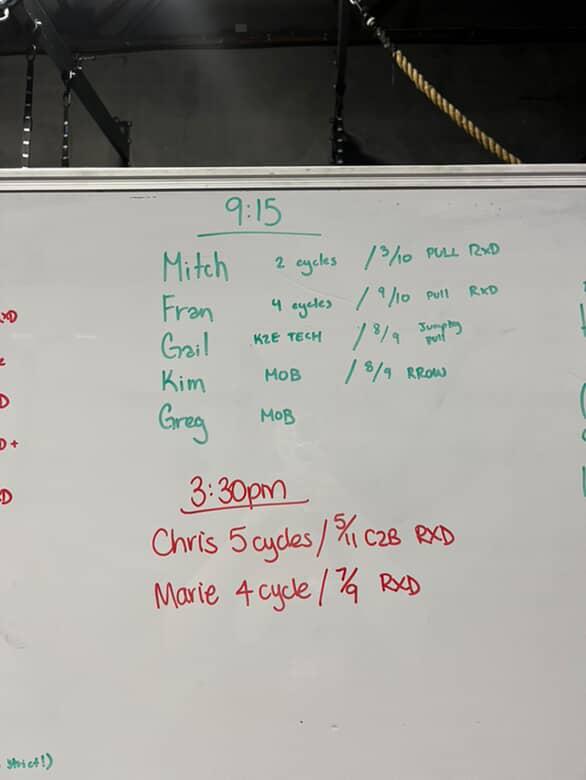 9:15
Mitch 2 cycles / 3/10 PULL RXD
Fran 4 cycles / 9/10 Pull RXD
Gail K2E TECH / 8/9 Jumping Pull
Kim MOB / 8/9 RROW
Greg MOB
3:30pm
Chris 5 cycles / 5/11 C2B RXD
Marie 4 cycle / 7/9 RXD
XD
D
D+
D
strict!)